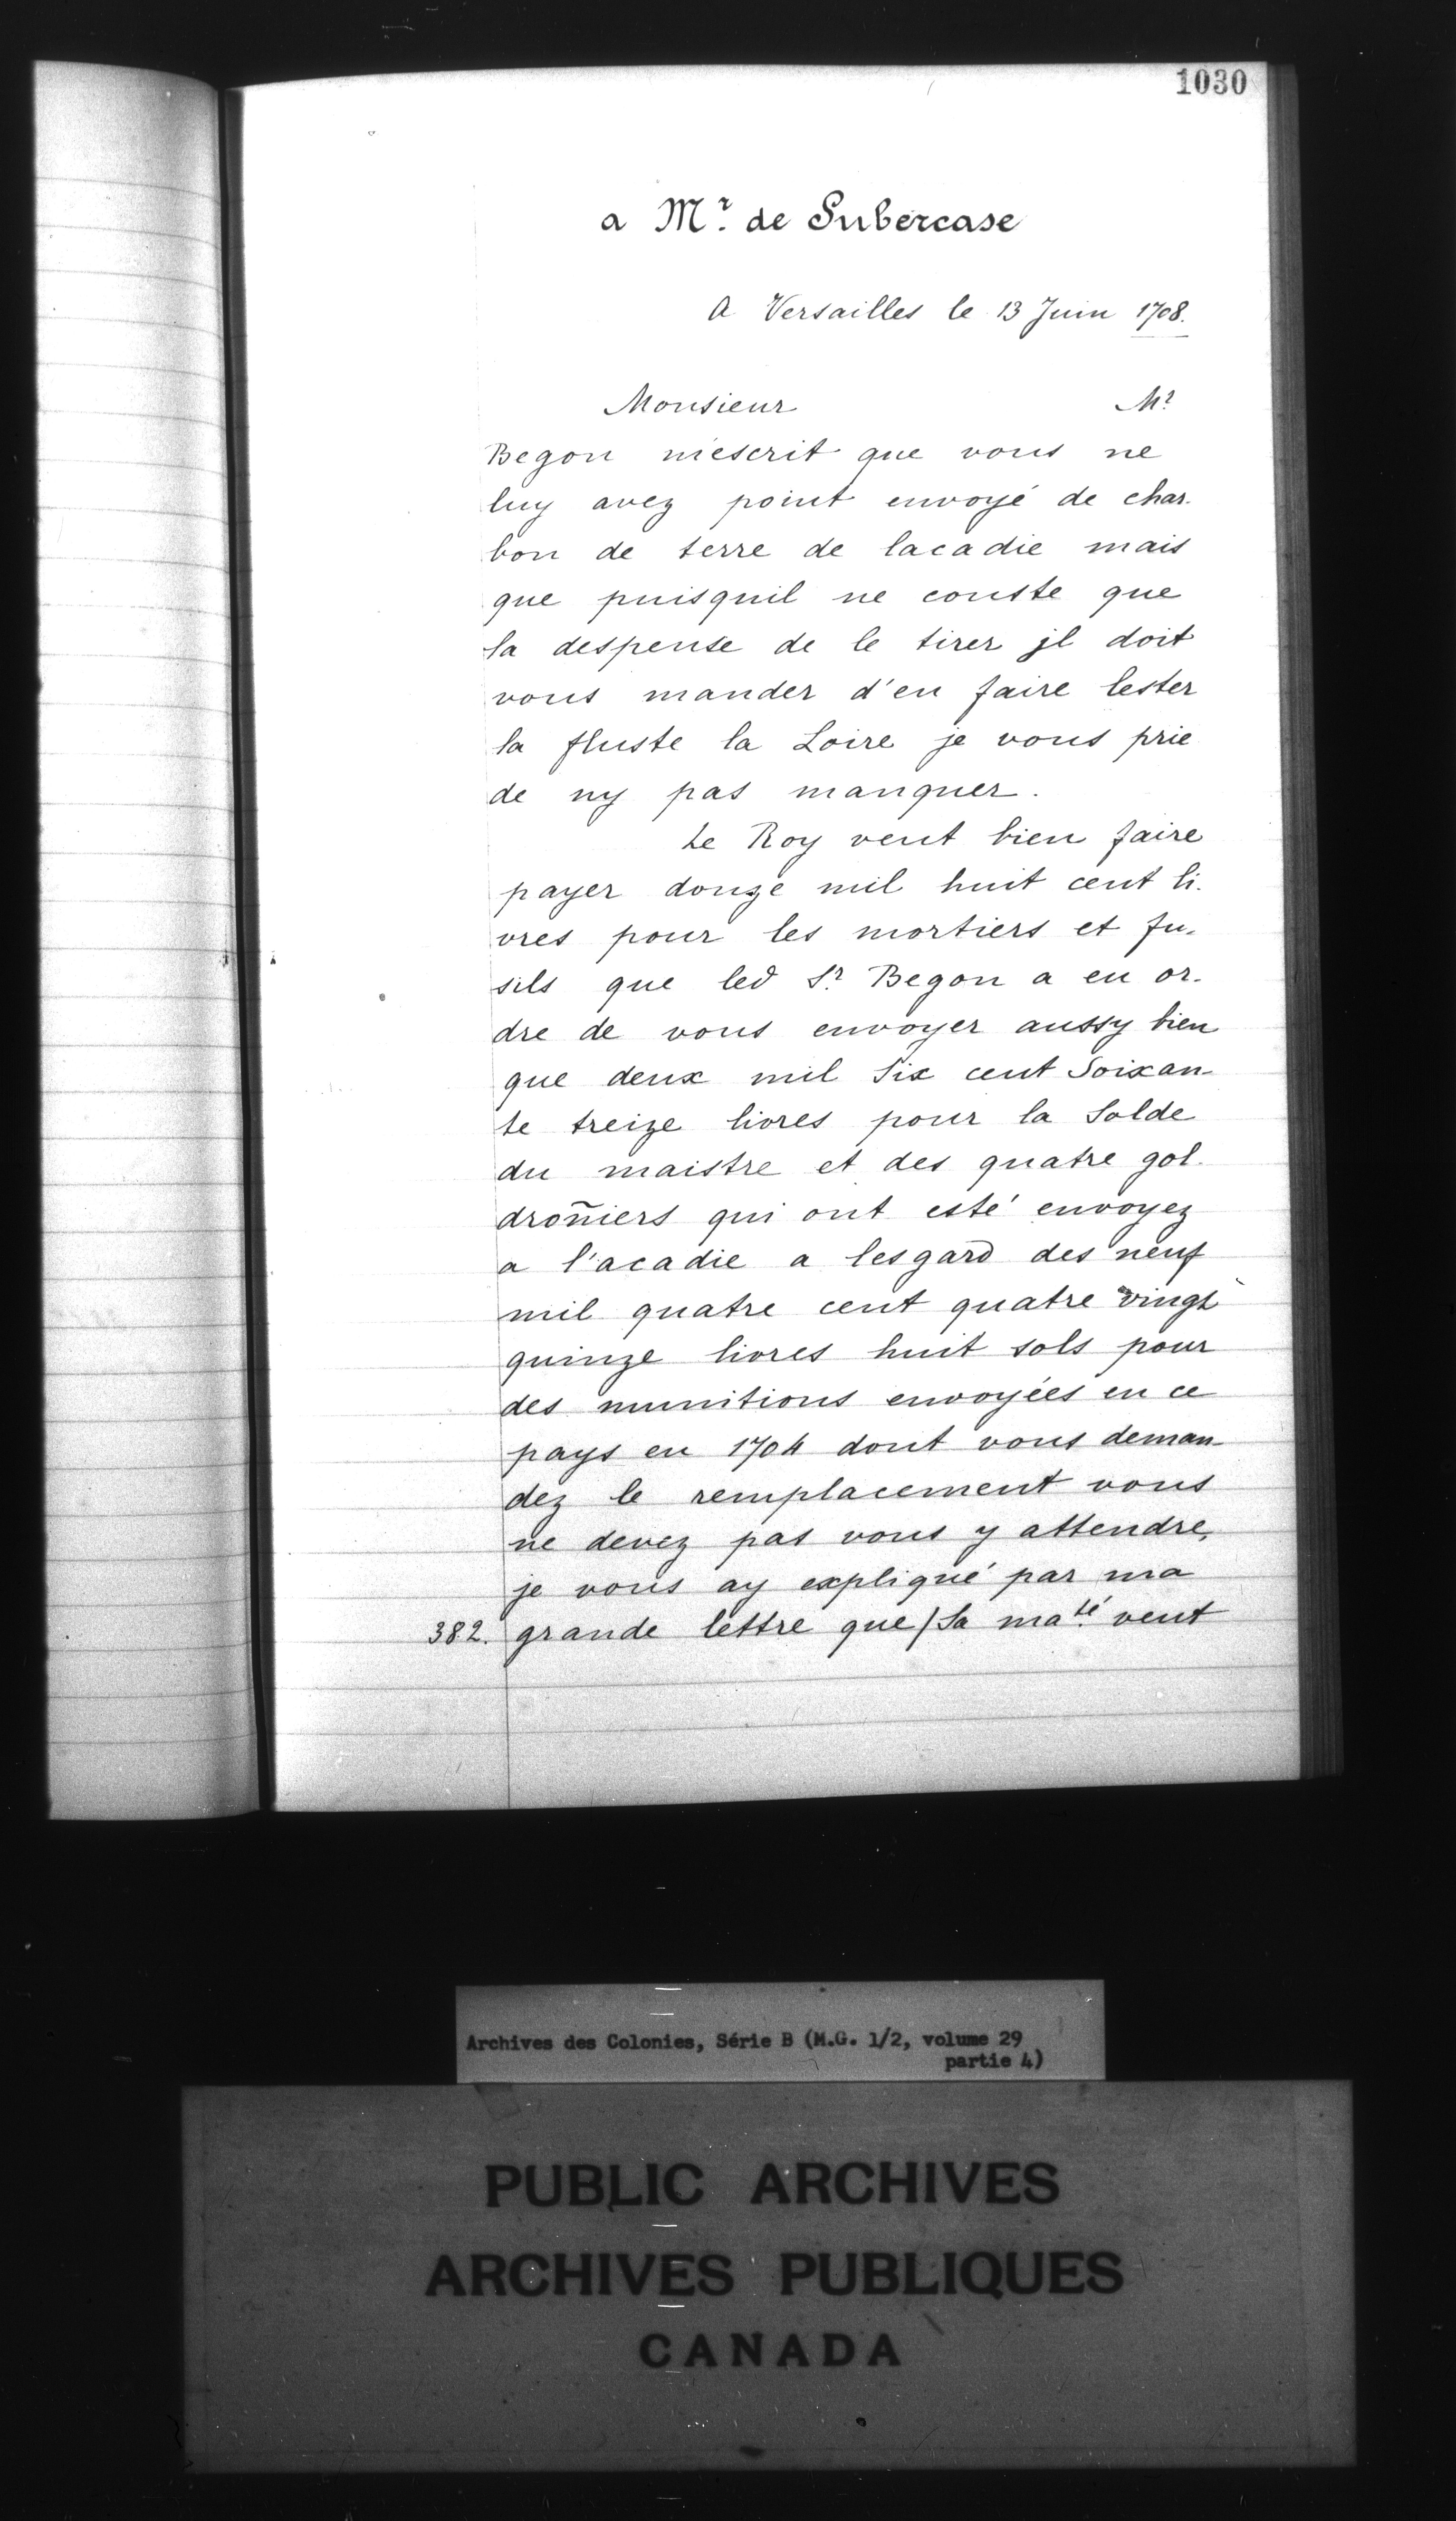 1030
a Mr. de Subercase
A Versailles le 13 Juin 1708.
Monsieur Mr
Begon m'escrit que vous ne
luy avez point envoyé de char-
bon de terre de lacadie mais
que puisquil ne couste que
la despense de le tirer jl doit
vous mander d'en faire lester
la fluste la Loire je vous prie
de ny pas manquer.
Le Roy veut bien faire
payer douze mil huit cent li-
vres pour les mortiers et fu-
sils que led Sr. Begon a eu or-
dre de vous envoyer aussy bien
que deux mil Six cent Soixan-
te treize livres pour la Solde
du maistre et des quatre gol-
droñiers qui ont esté envoyez
a l'acadie a lesgard des neuf
mil quatre cent quatre vingt
quinze livres huit sols pour
des munitions envoyées en ce
pays en 1704 dont vous deman-
dez le remplacement vous
ne devez pas vous y attendre,
je vous ay expliqué par ma
382. grande lettre que / Sa maté. veut
Archives des Colonies, Série B (M.G. 1/2, volume 29
partie 4)
PUBLIC ARCHIVES
ARCHIVES PUBLIQUES
CANADA